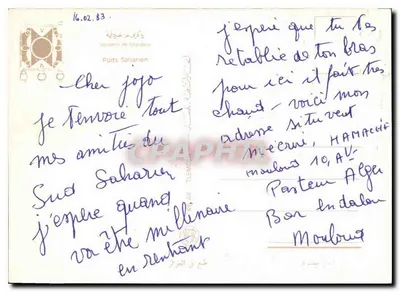 16.02.83.
Puits Saharien
Cher jojo
je t'envoie tout
mes amitiés du
Sud Saharien
j'espère quand
va être millinaire
en rentrant
j'espère que tu t'es
retablie de ton bras
pour ici il fait très
chaud - voici mon
adresse si tu veut
m'ecrire, HAMACHE
mouloud 10, AV.
Pasteur Alger
Bar
Mouloud